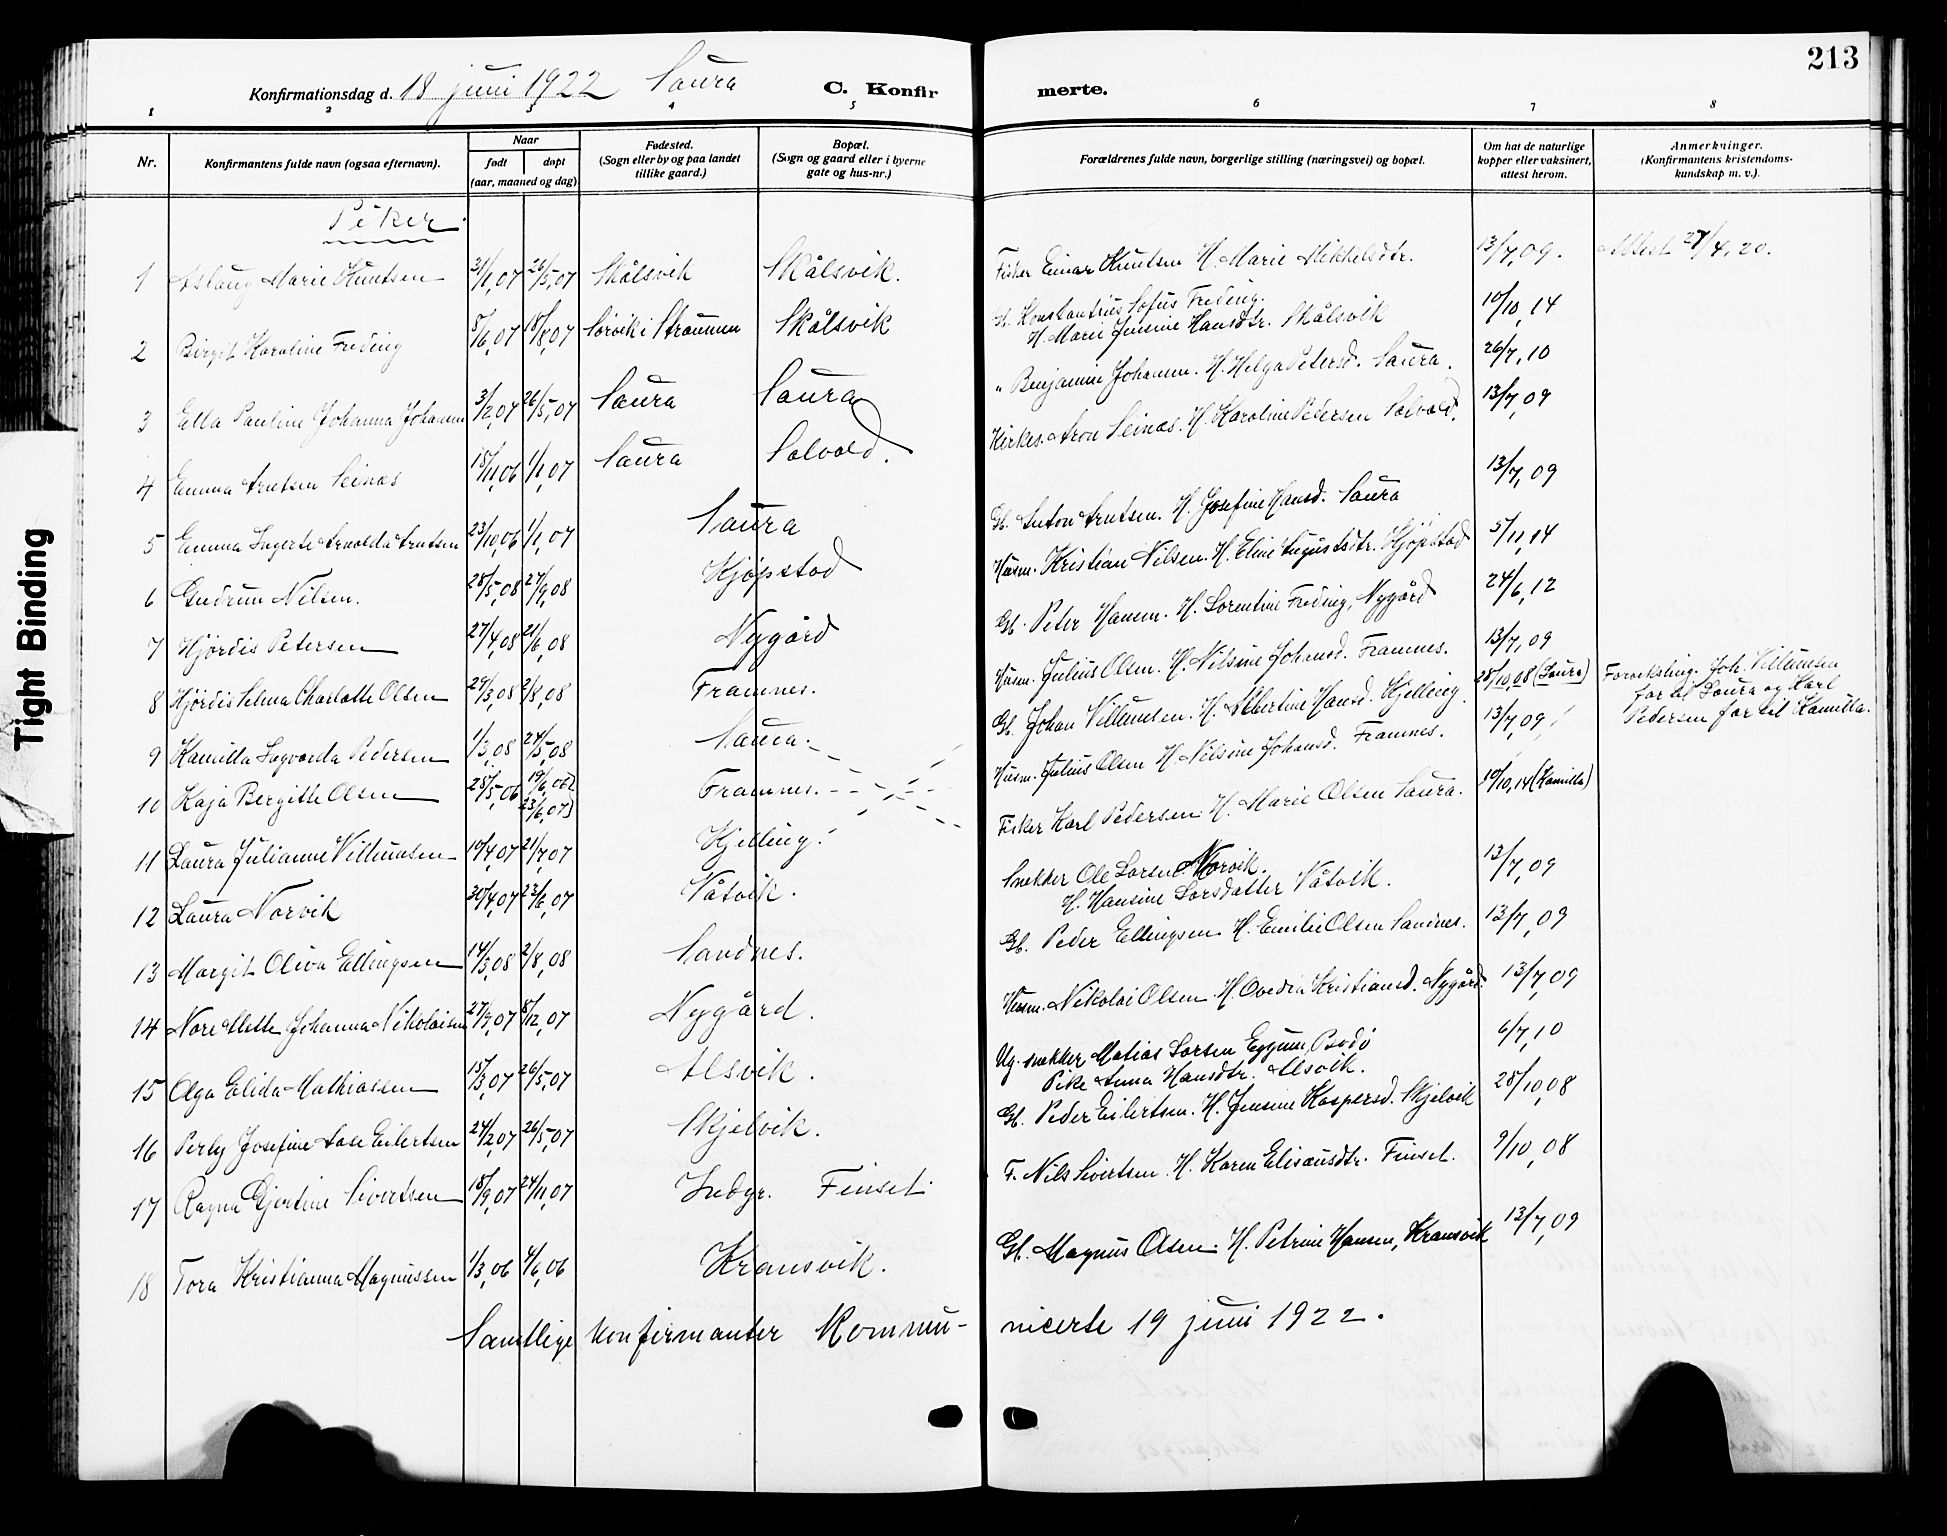 213
Konfirmationsdag d. 18 juni 1922 Saura C. Konfirmerte.
1 2 3 4 5 6 7 8
Nr.
Konfirmantens fulde navn (ogsaa efternavn).
Naar
født døpt
(aar, maaned og dag)
Fødested.
(Sogn eller by og paa landet
tillike gaard.)
Bopæl.
(Sogn og gaard eller i byerne
gate og hus-nr.)
Forældrenes fulde navn, borgerlige stilling (næringsvei) og bopæl.
Om hat de naturlige
kopper eller vaksinert,
attest herom.
Anmerkninger.
(Konfirmantens kristendoms-
kundskap m. v.).
Piker
1 Aslaug Marie Knutsen 31/1,07 26/5,07 Skålsvik Skålsvik. Fisker Einar Knutsen H. Marie Mikkelsdtr. 13/7,09. Attest 27/4,20.
2 Birgit Karoline Freding 5/6,07 18/8,07 Sørvik i Strømmen Skålsvik G. Konstantius Sofus Freding.
H. Marie Jensine Hansdtr. Skålsvik 10/10,14
3 Ella Pauline Johanna Johansen 3/2,07 26/5,07 Saura Saura " Benjamin Johansen. H. Helga Petersd. Saura. 26/7,10
4 Emma Arntsen Seines 15/11,06 1/1,07 Saura Solvold. Kirkes. Aron Seines. H. Karoline Pedersen Solvold. 13/7,09
5 Emma Ingerte Arnolda Arntsen 23/10,06 1/1,07 Saura G. Anton Arntsen. H. Josefine Hansd. Saura 13/7,09
6 Gudrun Nilsen. 28/5,08 27/9,08 Kjøpstad Husm. Kristian Nilsen. H. Eline Augustsdtr. Kjøpstad 5/11,14
7 Hjørdis Petersen 27/4,08 21/6,08 Nygård G. Peter Hansen. H. Lorentine Freding, Nygård 24/6,12
8 Hjørdis Selma Charlotte Olsen 29/3,08 2/8,08 Framnes. Husm. Julius Olsen. H. Nilsine Johansd. Framnes. 13/7,09
9 Kamilla Ingvarda Pedersen 1/3,08 24/5,08 Saura. G. Johan Villumsen. H. Albertine Hansd. Kjelling. 28/10,08 (Laura) Forveksling. Joh. Villumsen
far til Laura og Karl
Pedersen far til Kamilla.
10 Kaja Bergitte Olsen 28/5,06 19/6,06
23/6,07) Framnes. Husm. Julius Olsen H. Nilsine Johansd. Framnes. 13/7,09
11 Laura Julianne Villumsen 19/4,07 21/7,07 Kjelling. Fisker Karl Pedersen. H. Marie Olsen Saura. 10/10,14 (Kamilla)
12 Laura Norvik 30/4,07 23/6,07 Våtvik. Snekker Ole Larsen Norvik.
H. Hansine Larsdatter Våtvik. 13/7,09
13 Margit Oliva Ellingsen 14/3,08 2/8,08 Sandnes. G. Peder Ellingsen H. Emilie Olsen Sandnes. 13/7,09
14 Nore Mette Johanna Nikolaisen 27/9,07 8/12,07 Nygård. Husm. Nikolai Olsen. H. Ovedia Kristiansd. Nygård. 13/7,09
15 Olga Elida Mathiassen 15/3,07 26/5,07 Alsvik. Ug. snekker Matias Larsen Eggum, Bodø
Pike Anna Hansdtr. Alsvik. 6/7,10
16 Perly Josefine Aase Eilertsen 24/2,07 26/5,07 Skjelvik. G. Peder Eilertsen. H. Jensine Kaspersd. Skjelvik 28/10,08
17 Ragna Gjertine Sivertsen 18/9,07 24/11,07 Indgr. Finset. F. Nils Sivertsen. H. Karen Elisæusdtr. Finset. 9/10,08
18 Tora Kristianna Magnussen 1/3,06 4/6,06 Kransvik. G. Magnus Olsen. H. Petrine Hansen, Kransvik 13/7,09
Samtlige konfirmanter kommunicerte 19 juni 1922.
Tight Binding